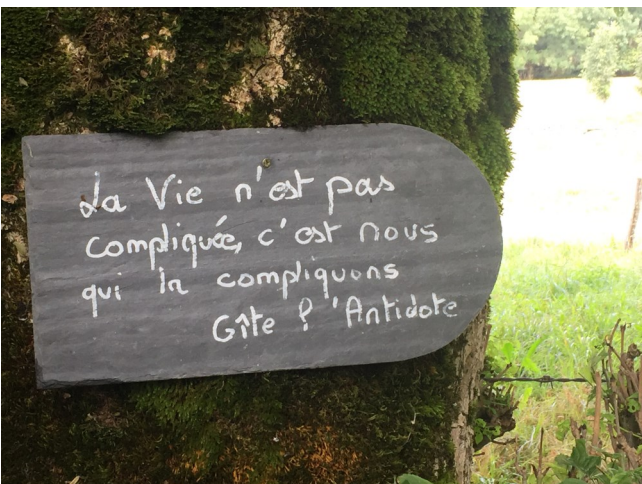 La Vie n'est pas
compliquée, c'est nous
qui la compliquons
Gîte l'Antidote